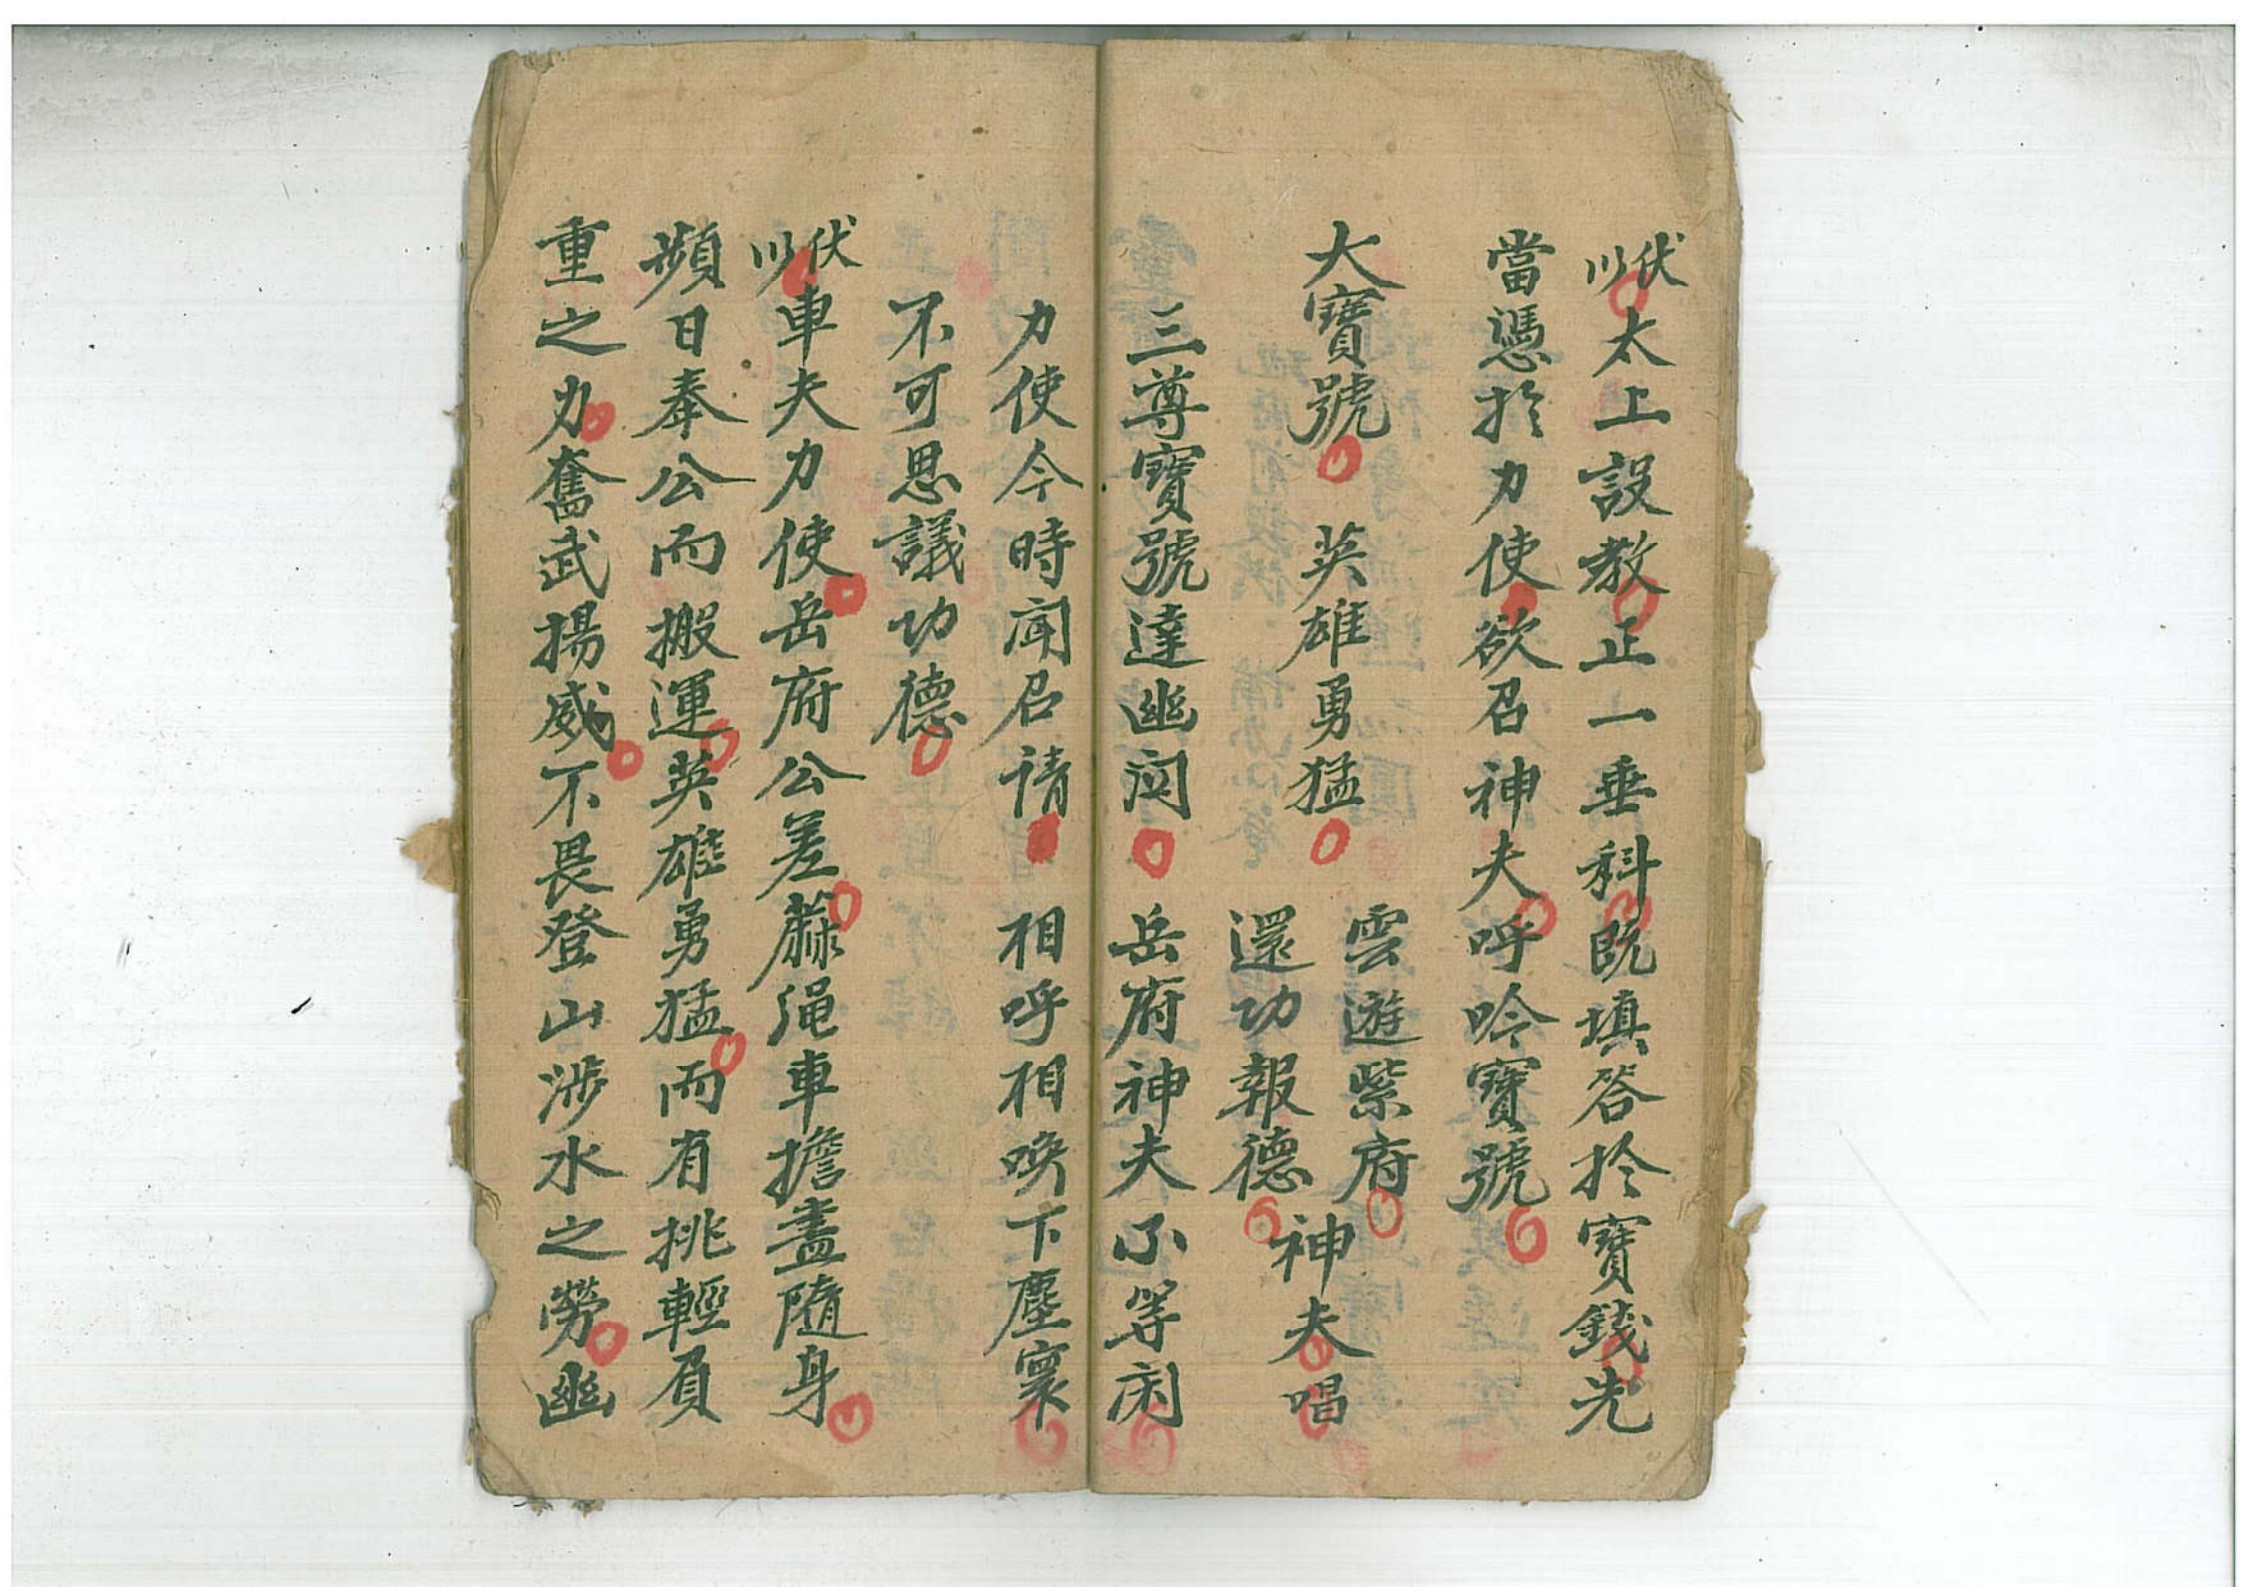 伏以太上設教正一垂科既填答於寶錢先
當憑於力使欲召神夫呼吟寶號
大寶號 英雄勇猛 雲遊紫府 還功報德 神夫唱
三尊寶號達幽関 岳府神夫不等闲
力使今時闻召请 相呼相唤下塵寰
不可思議功德
伏以車夫力使岳府公差蔴绳車擔盡隨身
蘋日奉公而搬運英雄勇猛而有挑輕負
重之力奮武揚威不畏登山涉水之勞幽